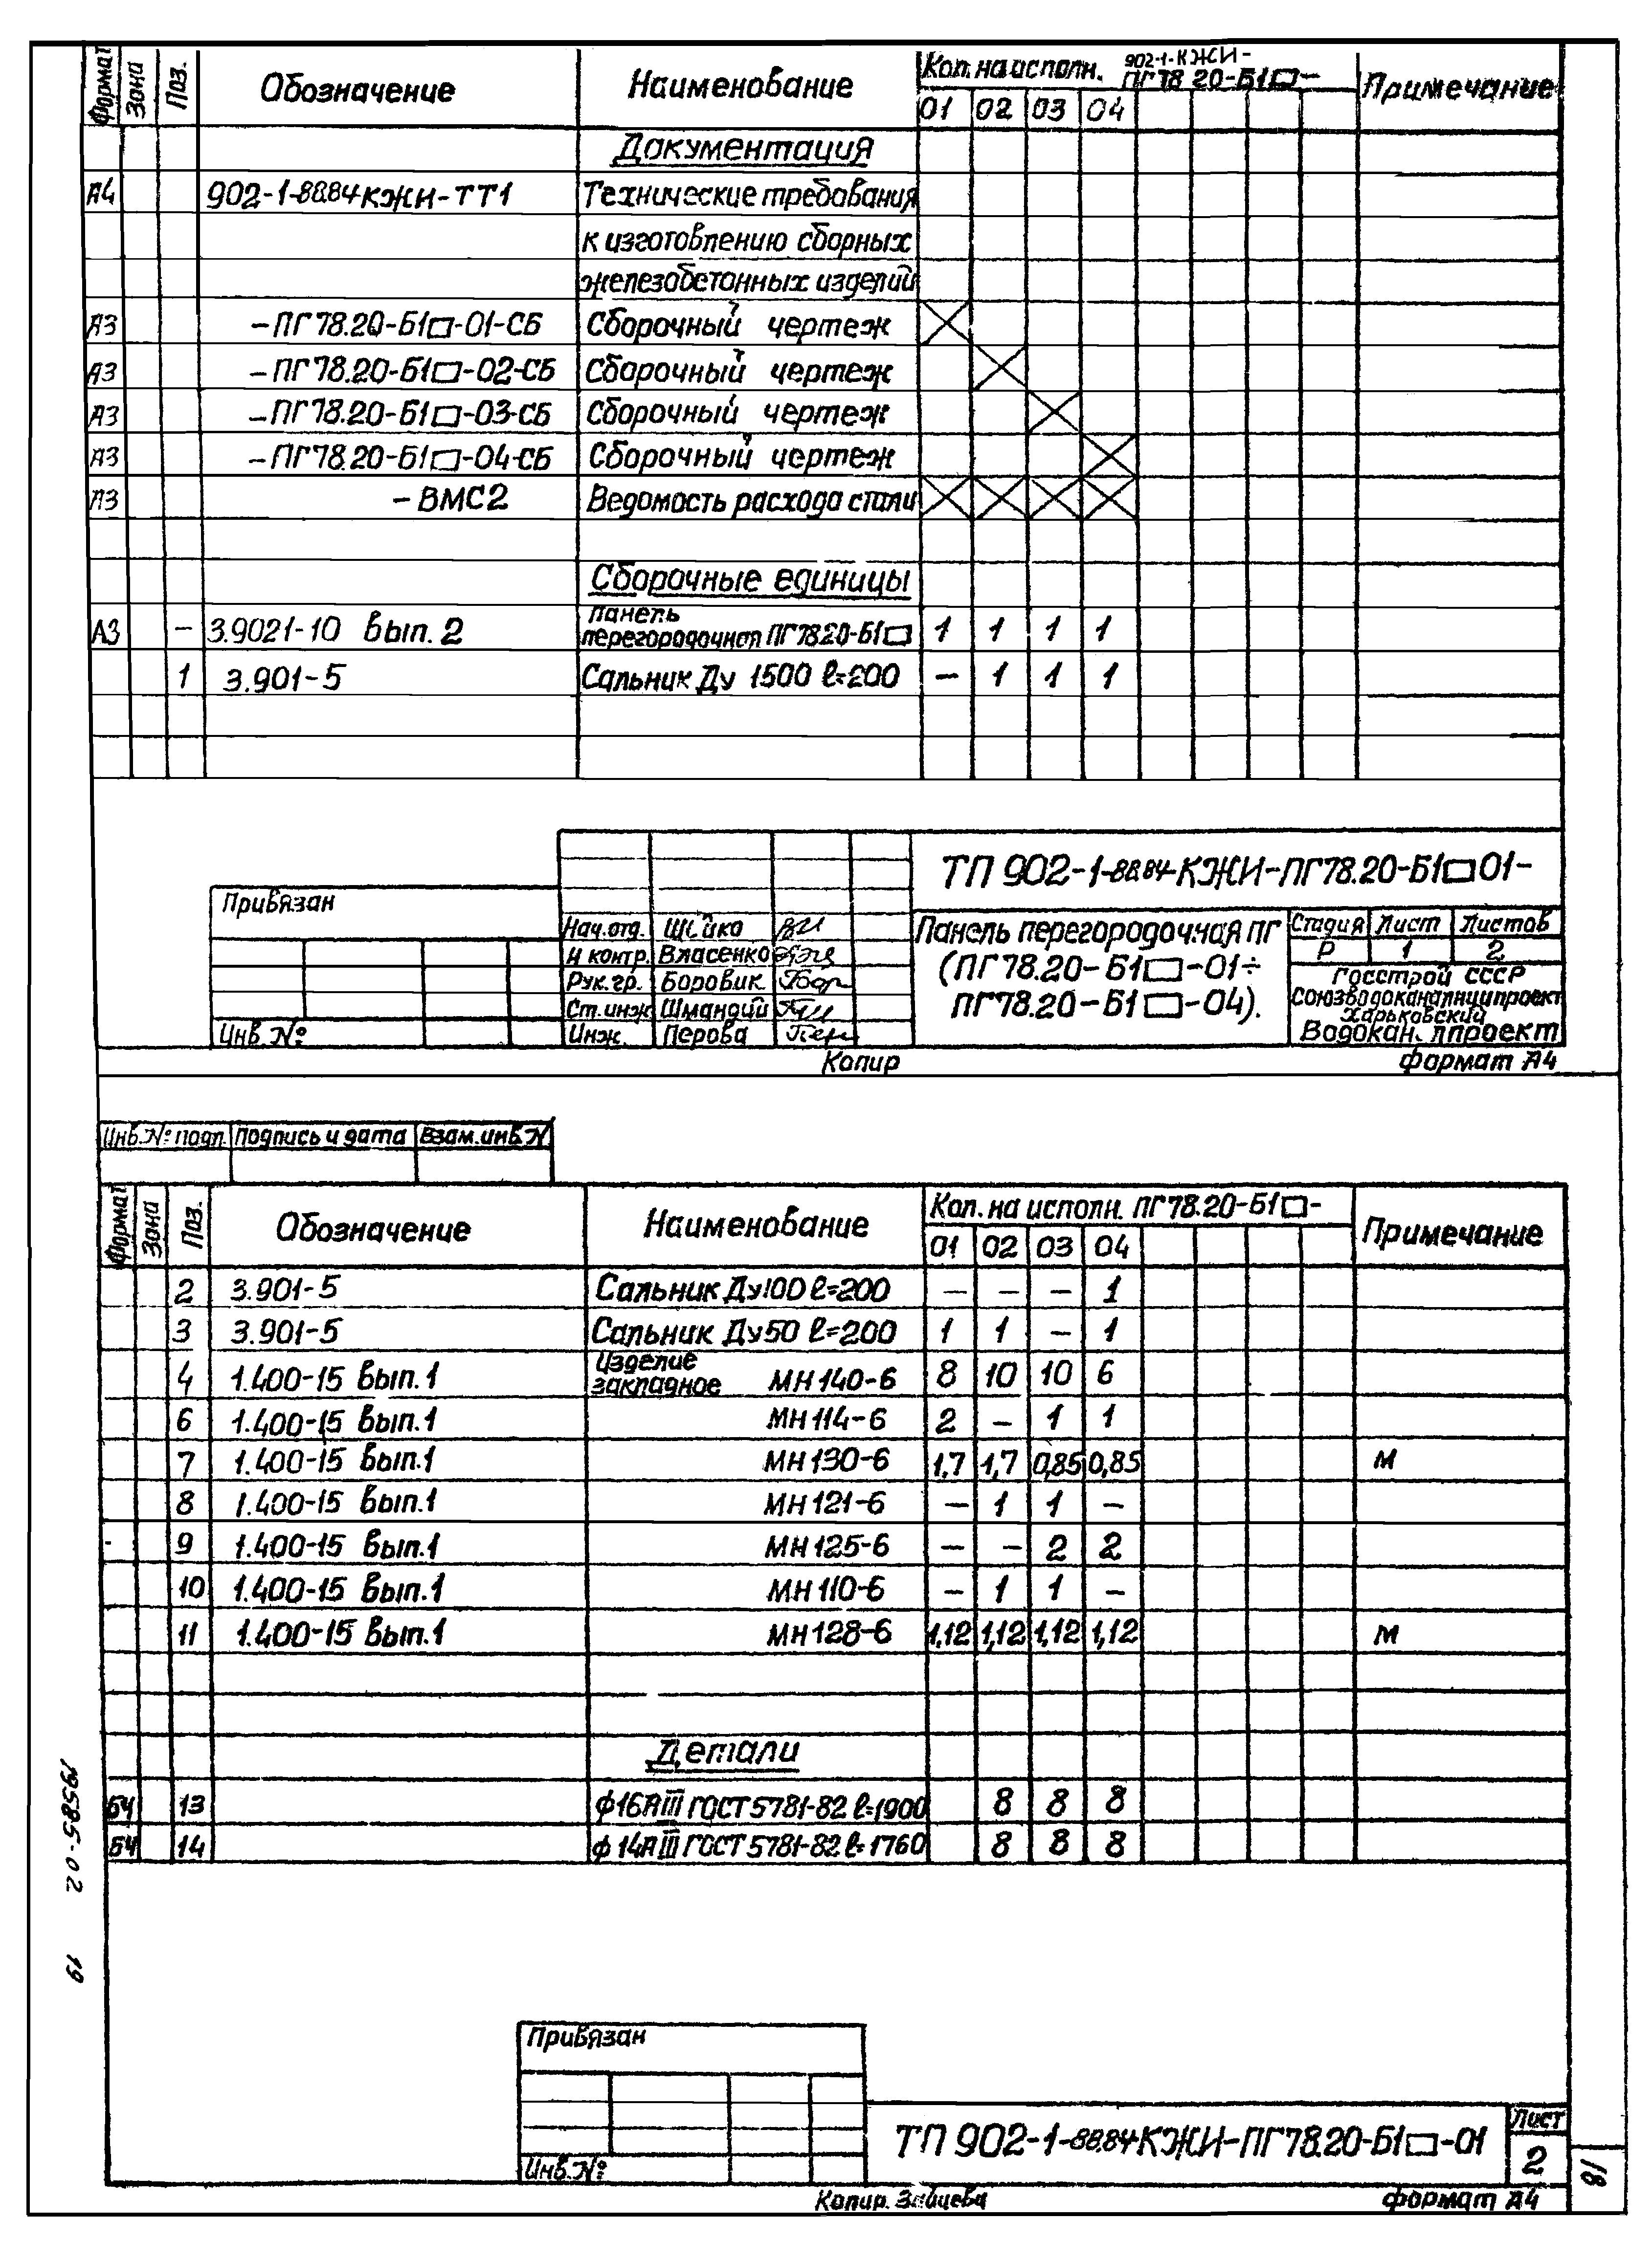 Формат Зона Поз. Обозначение Наименование Кол. на исполн. 902-1-КЖИ-ПГ78.20-Б1▭- Примечание
01 02 03 04
Документация
А4 902-1-88.84 КЖИ-ТТ1 Технические требования
к изготовлению сборных
железобетонных изделий
А3 -ПГ78.20-Б1▭-01-СБ Сборочный чертеж
А3 -ПГ78.20-Б1▭-02-СБ Сборочный чертеж
А3 -ПГ78.20-Б1▭-03-СБ Сборочный чертеж
А3 -ПГ78.20-Б1▭-04-СБ Сборочный чертеж
А3 -ВМС2 Ведомость расхода стали
Сборочные единицы
А3 - 3.9021-10 Вып. 2 Панель перегородочная ПГ78.20-Б1▭ 1 1 1 1
1 3.901-5 Сальник Ду 1500 ℓ=200 - 1 1 1
ТП 902-1-88.84-КЖИ-ПГ78.20-Б1▭01-
Привязан
Нач.отд. Шейко
Н контр. Власенко
Рук.гр. Боровик
Ст.инж Шмандий
Инж. Перова
Инв.№
Панель перегородочная ПГ
(ПГ78.20-Б1▭-01÷
ПГ78.20-Б1▭-04).
Стадия Лист Листов
Р 1 2
Госстрой СССР
Союзводоканалниипроект
Харьковский
Водоканалпроект
Копир Формат А4
Инв.№ подл. Подпись и дата Взам.инв.№
Формат Зона Поз. Обозначение Наименование Кол. на исполн. ПГ78.20-Б1▭- Примечание
01 02 03 04
2 3.901-5 Сальник Ду100 ℓ=200 - - - 1
3 3.901-5 Сальник Ду50 ℓ=200 1 1 - 1
4 1.400-15 Вып.1 Изделие закладное МН140-6 8 10 10 6
6 1.400-15 Вып.1 МН114-6 2 - 1 1
7 1.400-15 Вып.1 МН130-6 1,7 1,7 0,85 0,85 м
8 1.400-15 Вып.1 МН121-6 - 1 1 -
9 1.400-15 Вып.1 МН125-6 - - 2 2
10 1.400-15 Вып.1 МН110-6 - 1 1 -
11 1.400-15 Вып.1 МН128-6 1,12 1,12 1,12 1,12 м
Детали
БЧ 13 ф16АIII ГОСТ5781-82 ℓ=1900 8 8 8
БЧ 14 ф14АIII ГОСТ5781-82 ℓ=1760 8 8 8
19585-02 19
Привязан
Инв.№
ТП 902-1-88.84КЖИ-ПГ78.20-Б1▭-01
Лист
2
18
Копир. Зайцева Формат А4